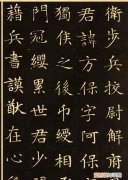 衛步兵校尉解府
君諱方保字阿保
獨俟之後巾綬相
門冠纓累世君少
藉兵書謨猷在心